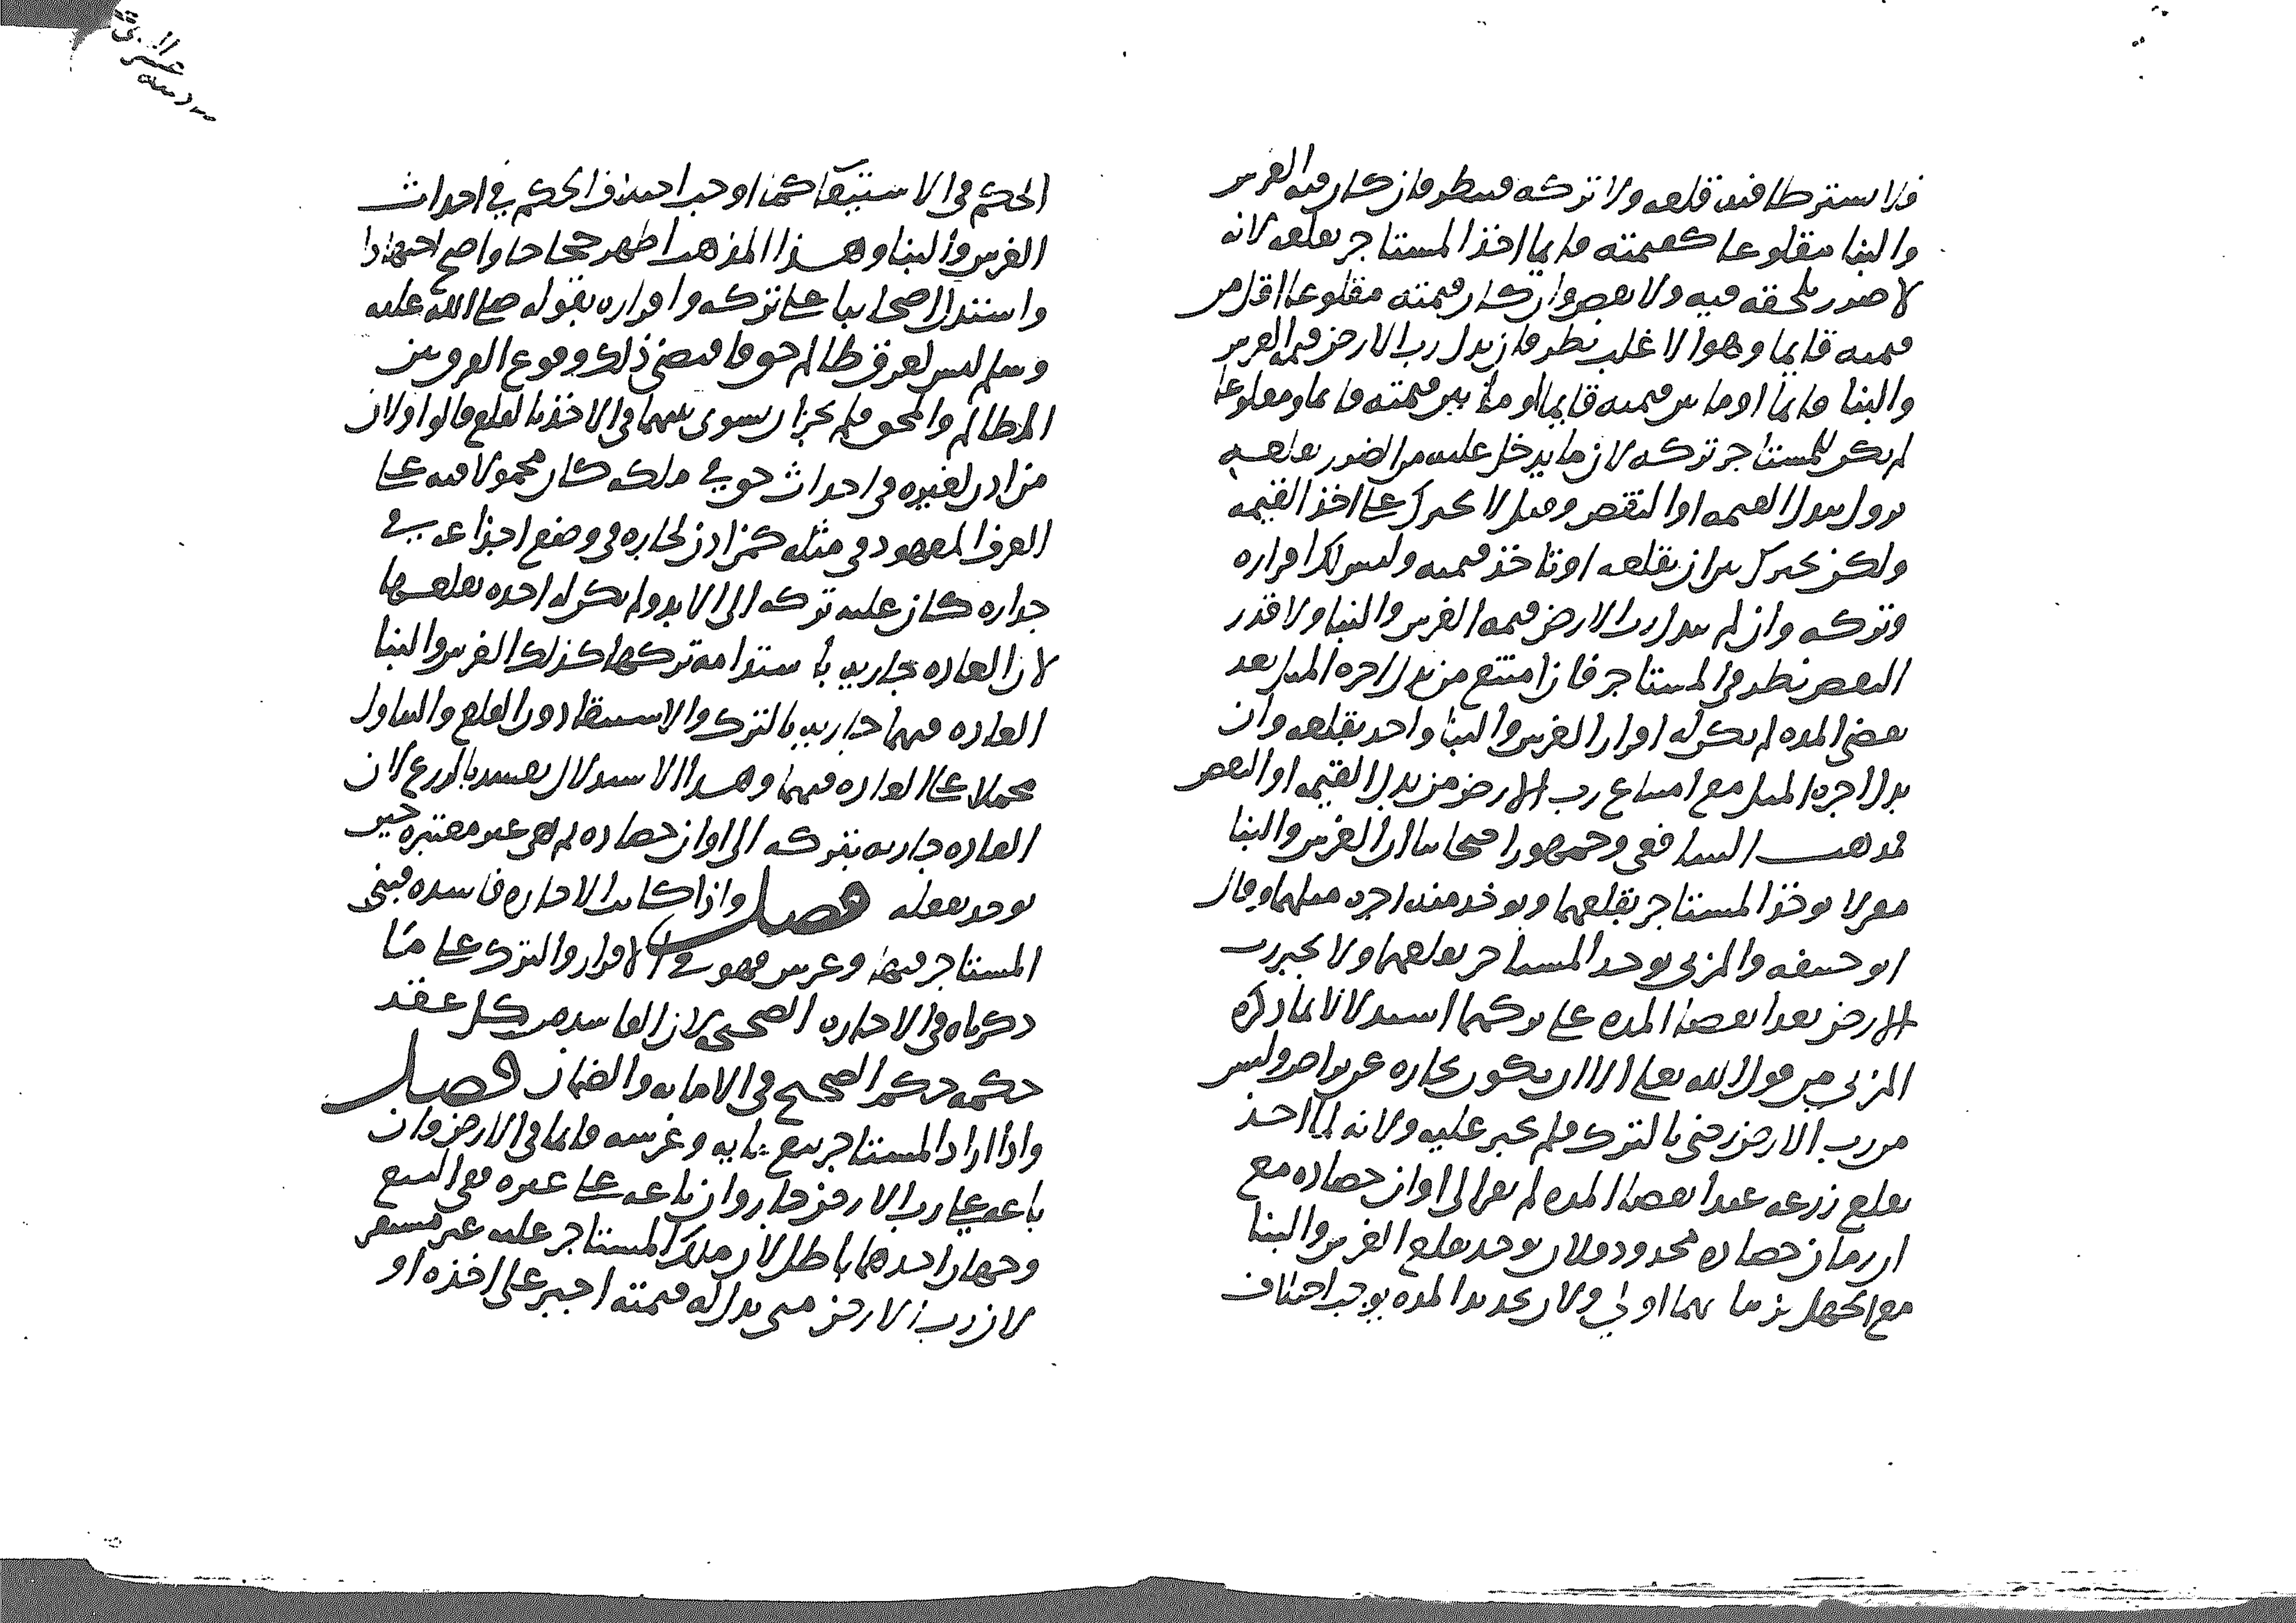 فلا يشترطا فيه قلعه ولا تركه فينظر فان كان قيمه الغرس
والبنا مقلوعا كقيمته قايما اخذ المستاجر بقلعه لانه
لا ضرر يلحقه فيه ولا نقص وان كان قيمته مقلوعا اقل من
قيمته قايما وهو الاغلب نظر فان بذل رب الارض قيمه الغرس
والبنا قايما او ما بين قيمته قايما او ما بين قيمته قايما ومقلوعا
لم يكن للمستاجر تركه لان ما يدخل عليه من الضرر بقلعه
يزول ببذل القيمه او النقص وقيل لا نجبرك على اخذ القيمه
ولكن نخيرك بين ان تقلعه او تاخذ قيمته وليس لك اقراره
وتركه وان لم يبذل رب الارض قيمه الغرس والبنا ولا قدر
النقص نظر في المستاجر فان امتنع من بذل اجره المثل بعد
تقضي المده لم يكن له اقرار الغرس والبنا واخذ بقلعه وان
بذل اجره المثل مع امتناع رب الارض من بذل القيمه او النقص
فمذهب الشافعي وجمهور اصحابنا ان الغرس والبنا
مقر لا يوخذ المستاجر بقلعهما ويوخذ منه اجره مثلهما وقال
ابو حنيفه والمزني يوخذ المستاجر بقلعهما ولا يجبر رب
الارض بعد انقضا المده على تركهما استدلالا بما ذكره
المزني من قول الله تعالى الا ان تكون تجاره عن تراض وليس
من رب الارض رضى بالترك فلم يجبر عليه ولانه لما اخذ
بقلع زرعه عند انقضا المده لم يقر الى اوان حصاده مع
ان زمان حصاده محدود فلان يوخذ بقلع الغرس والبنا
مع الجهل بزمانهما اولى ولان تحديد المده يوجب اختلاف
الحكم في الاستيفا كما اوجب اختلاف الحكم في احداث
الغرس والبنا وهذا المذهب اظهر حجاجا واصح اجتهادا
واستدل اصحابنا على تركه واقراره بقوله صلى الله عليه
وسلم ليس لعرق ظالم حق فاقتضى ذلك وقوع الفرق بين
الظالم والمحق فلم يجز ان يسوى بينهما في الاخذ بالقلع قالوا ولان
من اذن لغيره في احداث حق في ملكه كان محمولا فيه على
العرف المعهود في مثله كمن اذن لجاره في وضع اجذاعه في
جداره كان عليه تركه الى الابد ولم يكن له اخذه بقلعها
لان العاده جاريه باستدامه تركها كذلك الغرس والبنا
العاده فيهما جاريه بالترك والاستبقا دون القلع والتناول
محملا على العاده فيهما وهذا الاستدلال يفسد بالزرع لان
العاده جاريه بتركه الى اوان حصاده ثم هي غير معتبره حين
يوخذ بقلعه فصل واذا كانت الاجاره فاسده فبنى
المستاجر فيها وغرس فهو في الاقرار والترك على ما
ذكرناه في الاجاره الصحيحه لان الفاسد من كل عقد
حكمه حكم الصحيح في الامانه والضمان فصل
واذا اراد المستاجر بيع بنايه وغرسه قايما في الارض وان
باعه على رب الارض جاز وان باعه على غيره ففي البيع
وجهان احدهما باطل لان ملك المستاجر عليه غير مستقر
لان رب الارض متى بذل له قيمته اجبر على اخذه او